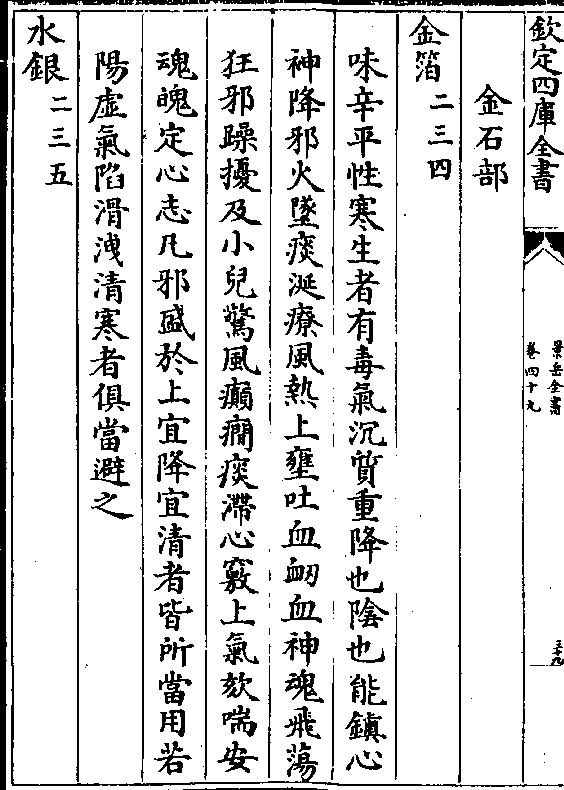 欽定四庫全書
景岳全書
卷四十九
三十九
金石部
金箔二三四
味辛平性寒生者有毒氣沉質重降也陰也能鎮心
神降邪火墜痰涎療風熱上壅吐血衂血神魂飛蕩
狂邪躁擾及小兒驚風癲癇痰滯心竅上氣欬喘安
魂魄定心志凡邪盛於上宜降宜清者皆所當用若
陽虛氣陷滑洩清寒者俱當避之
水銀二三五